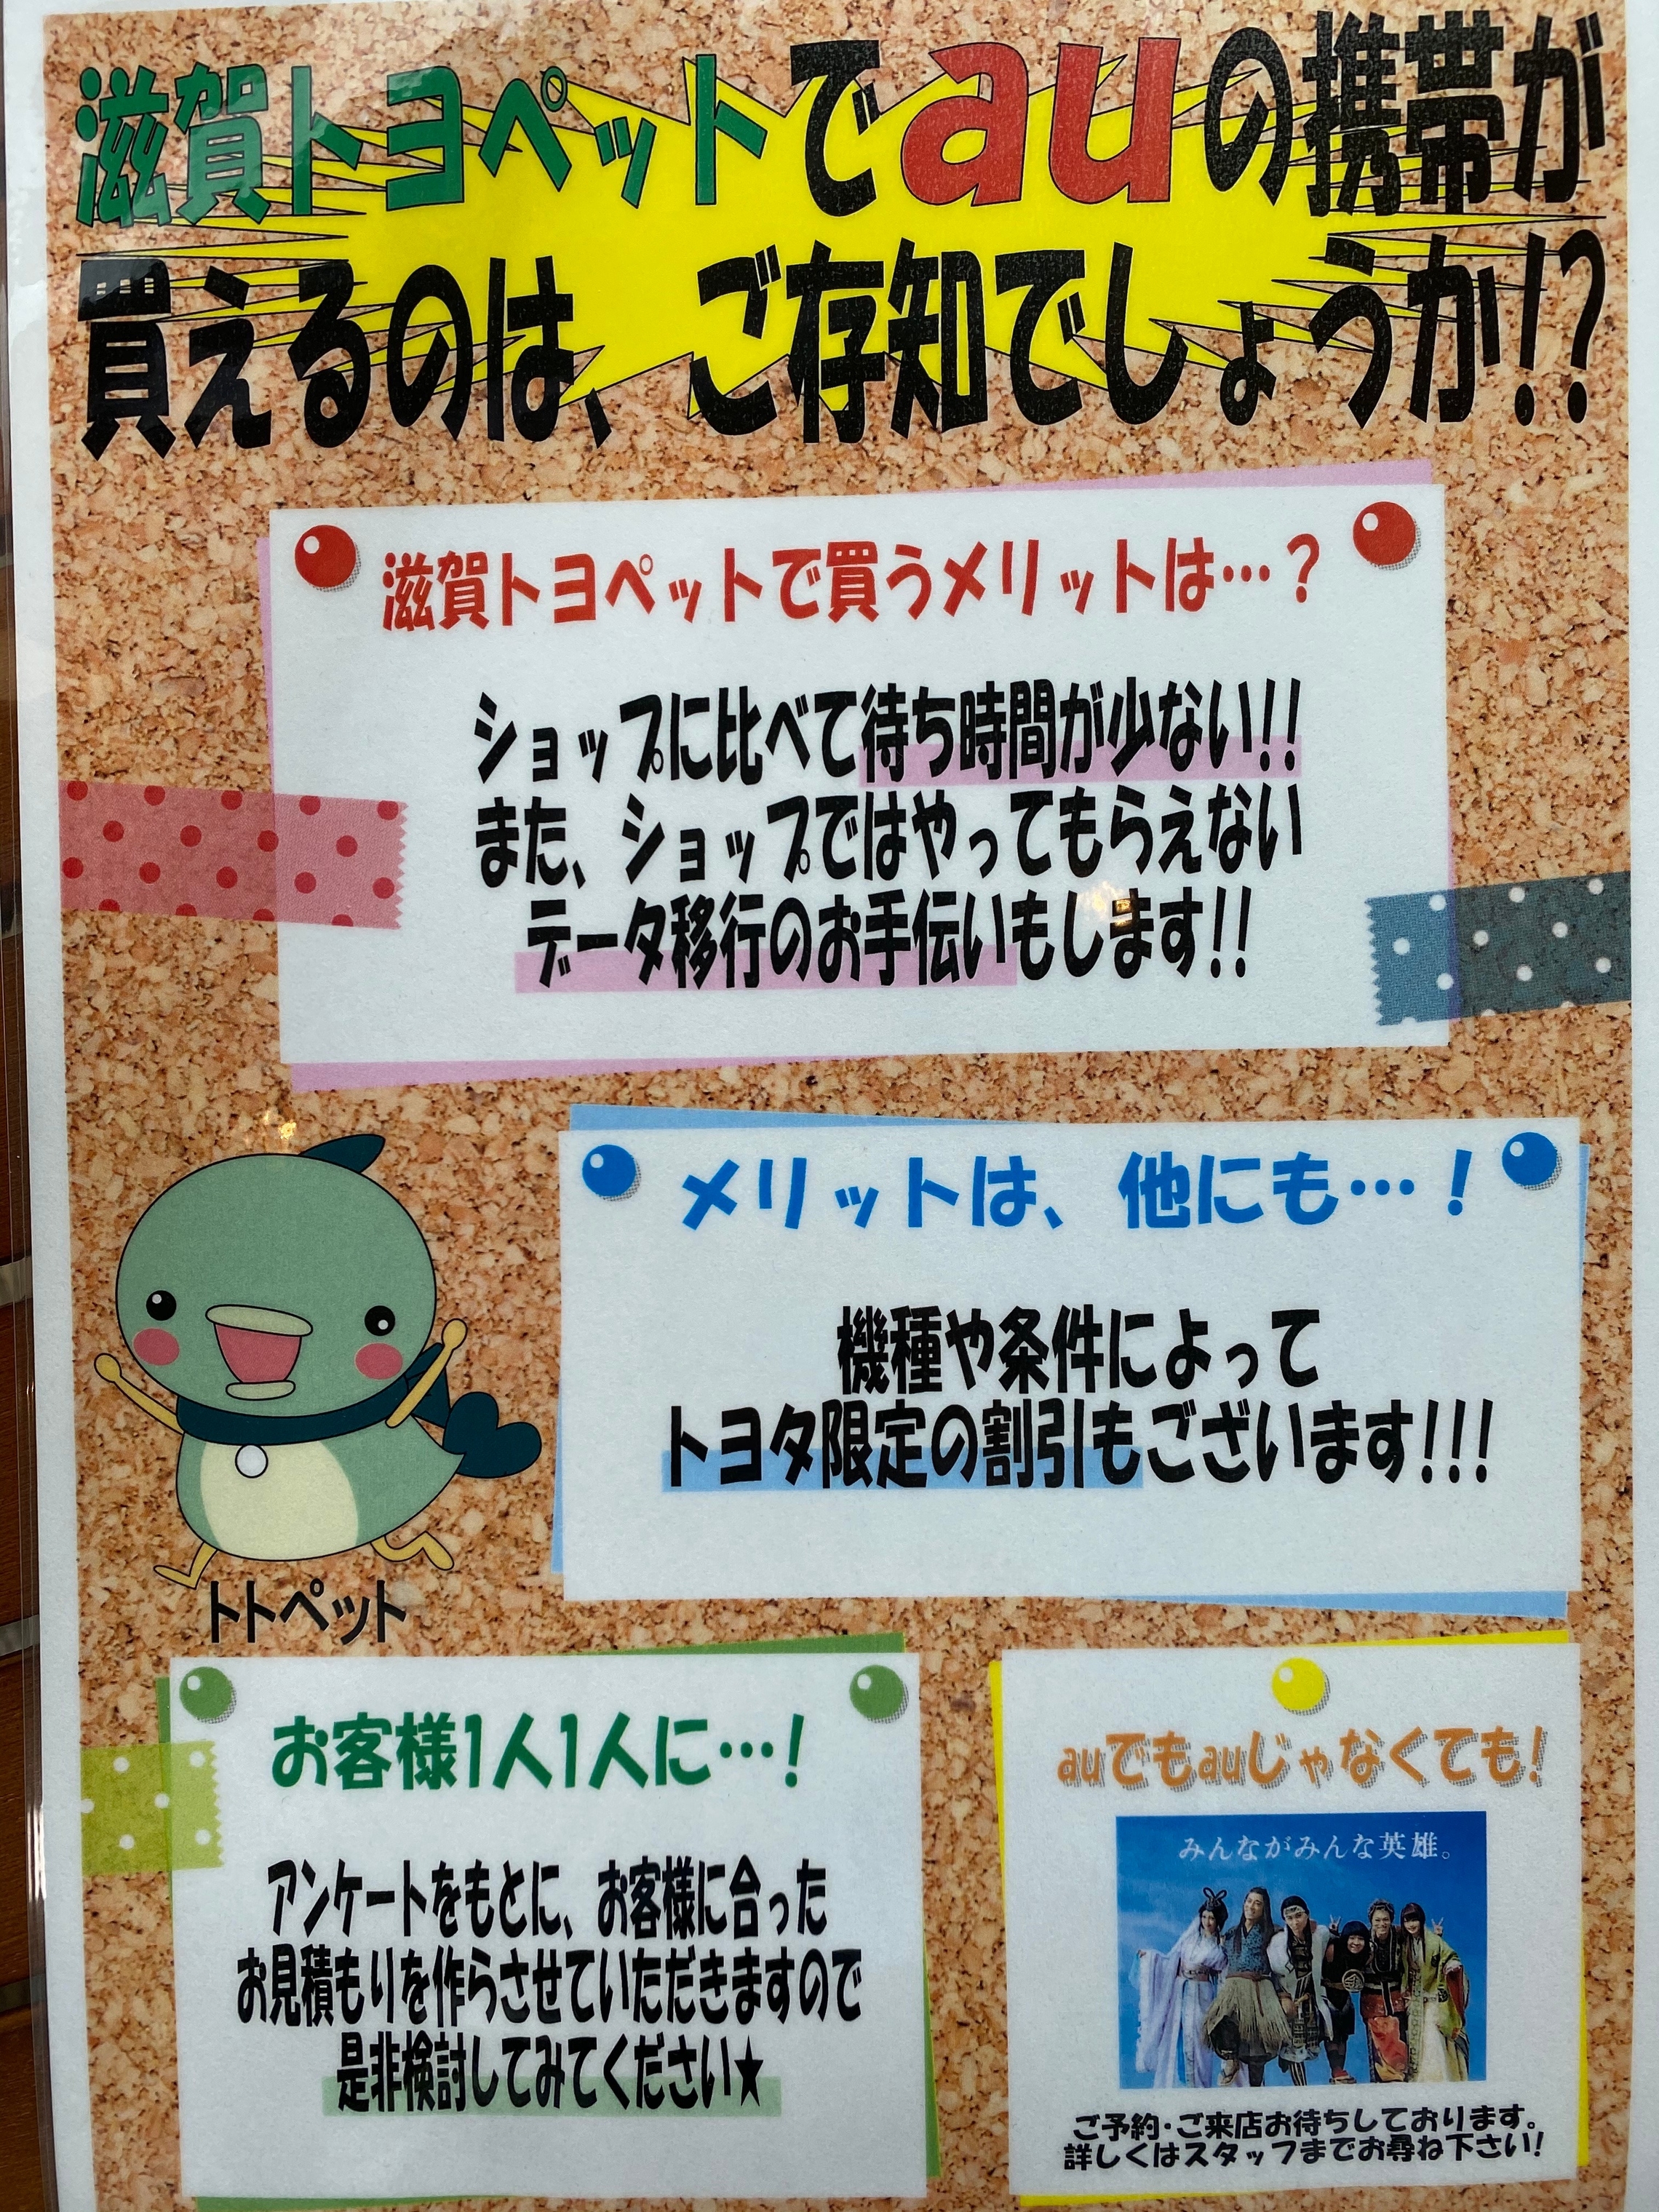 滋賀トヨペットでauの携帯が
買えるのは、ご存知でしょうか!?
滋賀トヨペットで買うメリットは…？
ショップに比べて待ち時間が少ない!!
また、ショップではやってもらえない
データ移行のお手伝いもします!!
メリットは、他にも…！
機種や条件によって
トヨタ限定の割引もございます!!!
トトペット
お客様1人1人に…！
アンケートをもとに、お客様に合った
お見積もりを作らさせていただきますので
是非検討してみてください★
auでもauじゃなくても！
みんながみんな英雄。
ご予約・ご来店お待ちしております。
詳しくはスタッフまでお尋ね下さい！